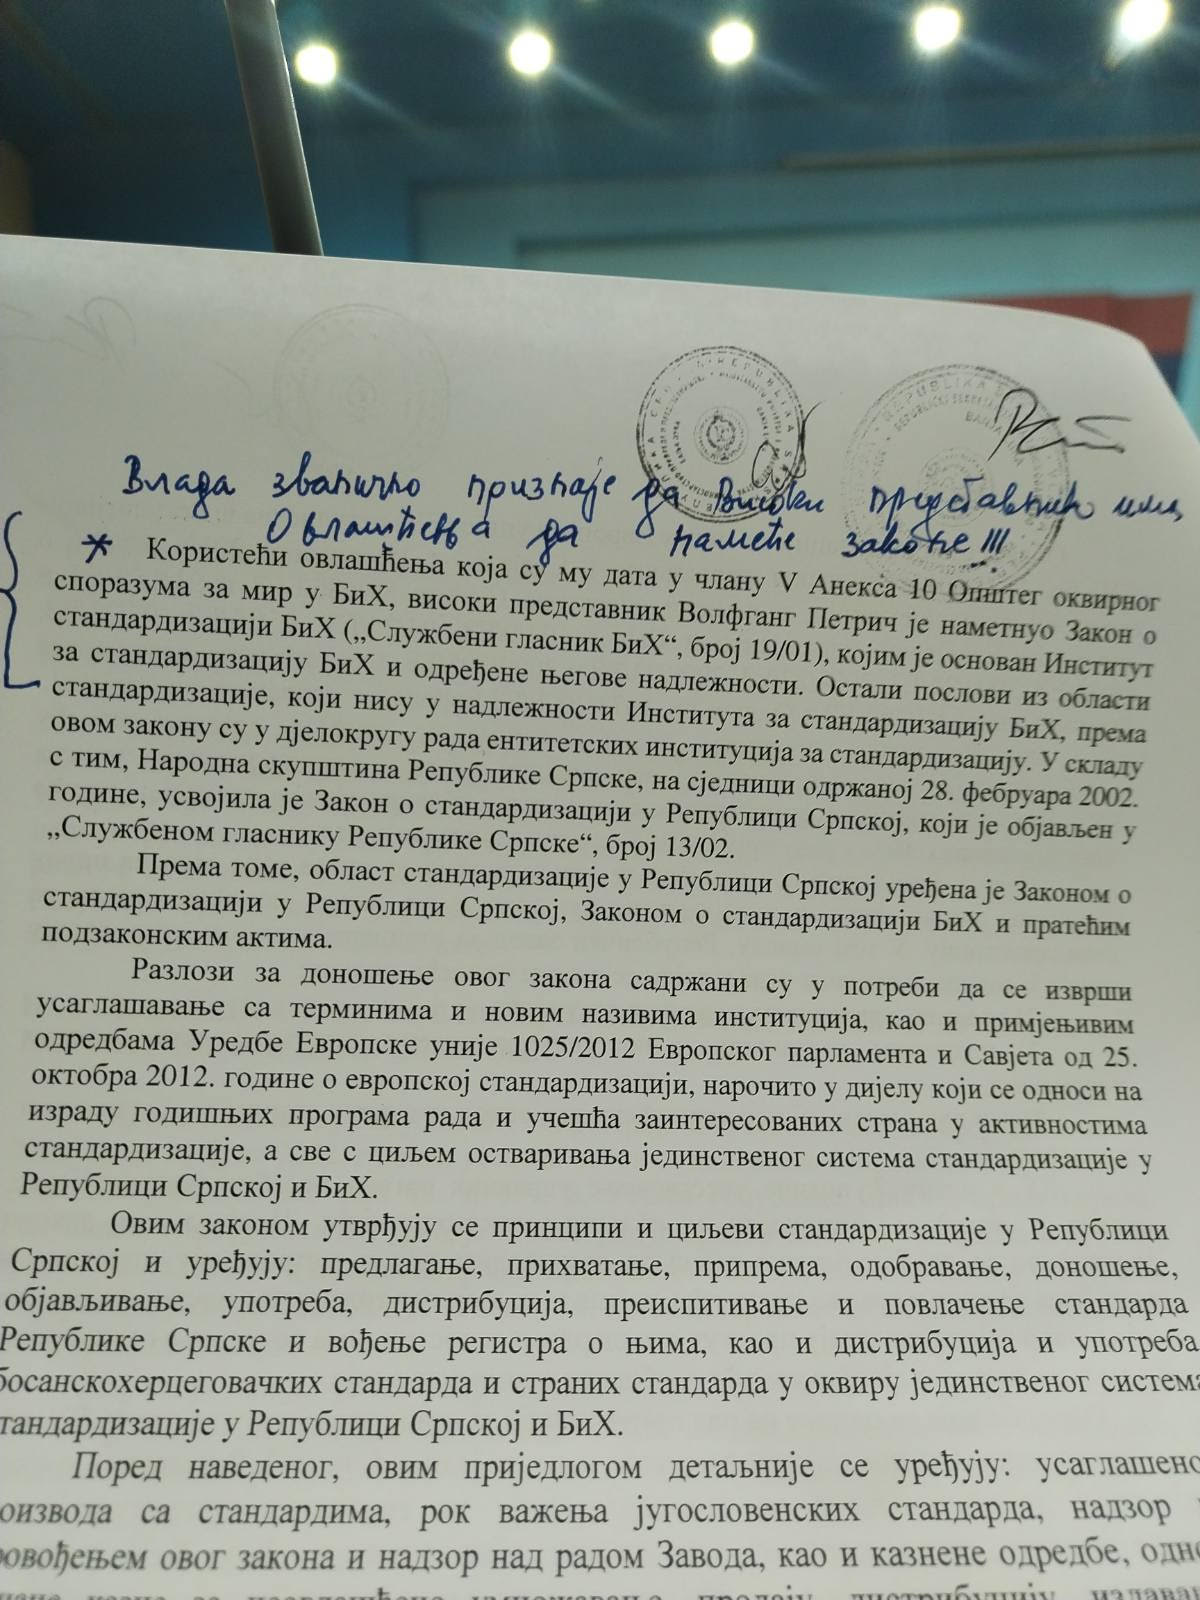 Влада званично признаје да Високи представник има
Овлашћења да намеће законе!!!
* Користећи овлашћења која су му дата у члану V Анекса 10 Општег оквирног
споразума за мир у БиХ, високи представник Волфганг Петрич је наметнуо Закон о
стандардизацији БиХ („Службени гласник БиХ“, број 19/01), којим је основан Институт
за стандардизацију БиХ и одређене његове надлежности. Остали послови из области
стандардизације, који нису у надлежности Института за стандардизацију БиХ, према
овом закону су у дјелокругу рада ентитетских институција за стандардизацију. У складу
с тим, Народна скупштина Републике Српске, на сједници одржаној 28. фебруара 2002.
године, усвојила је Закон о стандардизацији у Републици Српској, који је објављен у
„Службеном гласнику Републике Српске“, број 13/02.
Према томе, област стандардизације у Републици Српској уређена је Законом о
стандардизацији у Републици Српској, Законом о стандардизацији БиХ и пратећим
подзаконским актима.
Разлози за доношење овог закона садржани су у потреби да се изврши
усаглашавање са терминима и новим називима институција, као и примјењивим
одредбама Уредбе Европске уније 1025/2012 Европског парламента и Савјета од 25.
октобра 2012. године о европској стандардизацији, нарочито у дијелу који се односи на
израду годишњих програма рада и учешћа заинтересованих страна у активностима
стандардизације, а све с циљем остваривања јединственог система стандардизације у
Републици Српској и БиХ.
Овим законом утврђују се принципи и циљеви стандардизације у Републици
Српској и уређују: предлагање, прихватање, припрема, одобравање, доношење,
објављивање, употреба, дистрибуција, преиспитивање и повлачење стандарда
Републике Српске и вођење регистра о њима, као и дистрибуција и употреба
босанскохерцеговачких стандарда и страних стандарда у оквиру јединственог система
тандардизације у Републици Српској и БиХ.
Поред наведеног, овим приједлогом детаљније се уређују: усаглашено
оизвода са стандардима, рок важења југословенских стандарда, надзор
ровођењем овог закона и надзор над радом Завода, као и казнене одредбе, одно